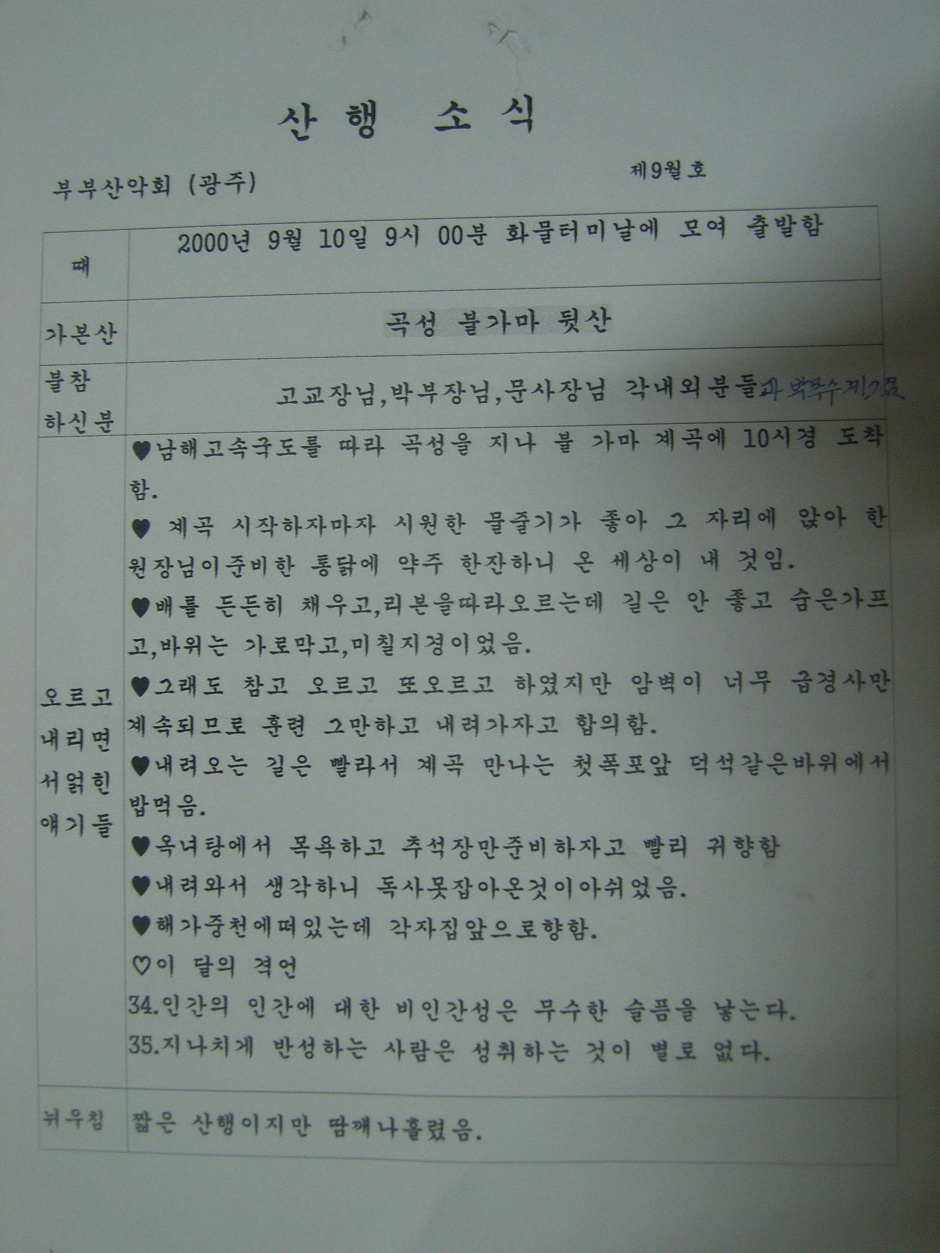 산 행 소 식
부부산악회 (광주)
제9월호
때
2000년 9월 10일 9시 00분 화물터미날에 모여 출발함
가본산
곡성 불가마 뒷산
불참
하신분
고교장님,박부장님,문사장님 각내외분들과
오르고
내리면
서얽힌
얘기들
♥남해고속국도를 따라 곡성을 지나 불 가마 계곡에 10시경 도착
함.
♥ 계곡 시작하자마자 시원한 물줄기가 좋아 그 자리에 앉아 한
원장님이준비한 통닭에 약주 한잔하니 온 세상이 내 것임.
♥배를 든든히 채우고,리본을따라오르는데 길은 안 좋고 숨은가프
고,바위는 가로막고,미칠지경이었음.
♥그래도 참고 오르고 또오르고 하였지만 암벽이 너무 급경사만
계속되므로 훈련 그만하고 내려가자고 합의함.
♥내려오는 길은 빨라서 계곡 만나는 첫폭포앞 덕석같은바위에서
밥먹음.
♥옥녀탕에서 목욕하고 추석장만준비하자고 빨리 귀향함
♥내려와서 생각하니 독사못잡아온것이아쉬었음.
♥해가중천에떠있는데 각자집앞으로향함.
♡이 달의 격언
34.인간의 인간에 대한 비인간성은 무수한 슬픔을 낳는다.
35.지나치게 반성하는 사람은 성취하는 것이 별로 없다.
뉘우침
짧은 산행이지만 땀깨나흘렸음.